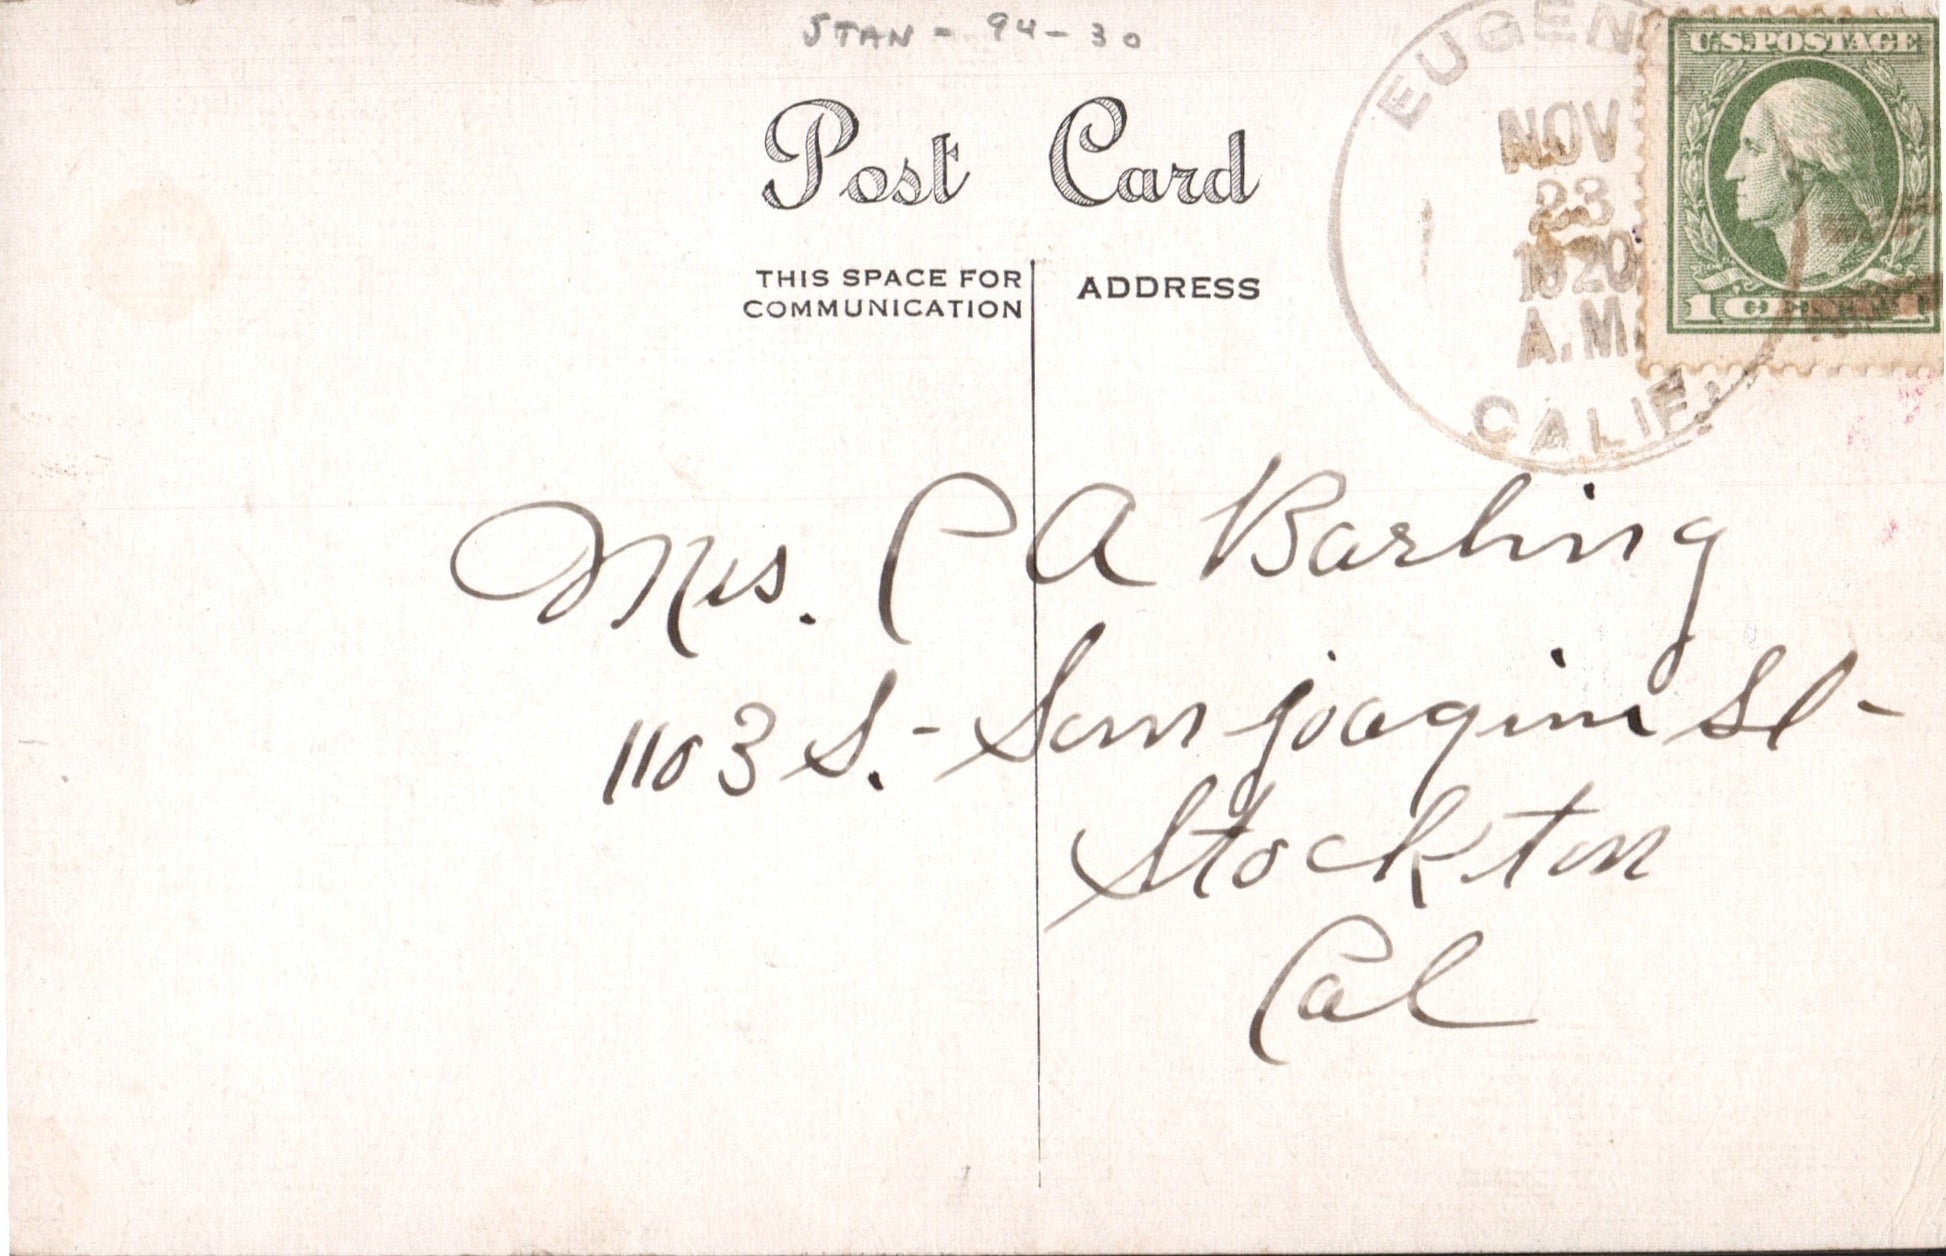 STAN - 94-30
Post Card
THIS SPACE FOR
COMMUNICATION
ADDRESS
EUGEN
NOV
23
1920
A.M.
CALIF.
U.S. POSTAGE
1 CENT 1
Mrs. C A Barling
1103 S. - San joaquin St -
Stockton
Cal